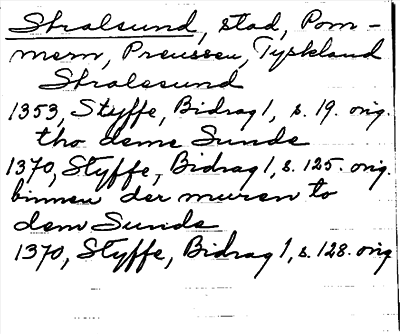 Stralsund, stad, Pom-
mern, Preussen, Tyskland
Stralesund
1353, Styffe, Bidrag 1, s. 19. orig.
tho deme Sunde
1370, Styffe, Bidrag 1, s. 125. orig.
binnen der muren to
dem Sunde
1370, Styffe, Bidrag 1, s. 128. orig